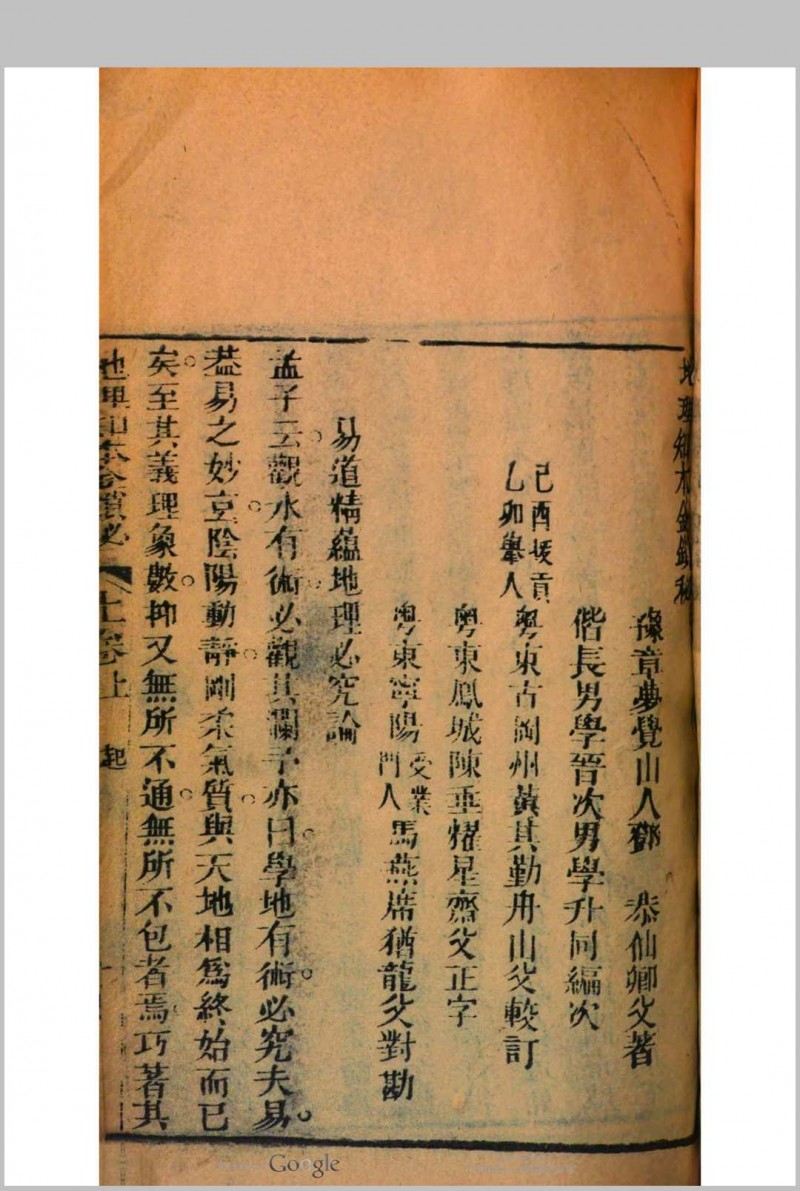 地理知本金鎖秘
豫章夢覺山人鄧 恭仙卿父著
偕長男學晉次男學升同編次
己酉拔貢乙卯舉人粵東古岡州黃其勤舟山父較訂
粵東鳳城陳垂燿星齋父正字
粵東寧陽受業門人馬燕席猶龍父對勘
易道精蘊地理必究論
孟子云觀水有術必觀其瀾予亦曰學地有術必究夫易
葢易之妙亶陰陽動靜剛柔氣質與天地相爲終始而已
矣至其義理象數抑又無所不通無所不包者焉巧著其
地理知本金鎖秘 上卷上 起
Google